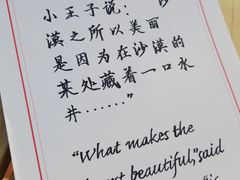 小王子说：“沙
漠之所以美丽
是因为在沙漠的
某处藏着一口水
井……”
“What makes the
beautiful,” said